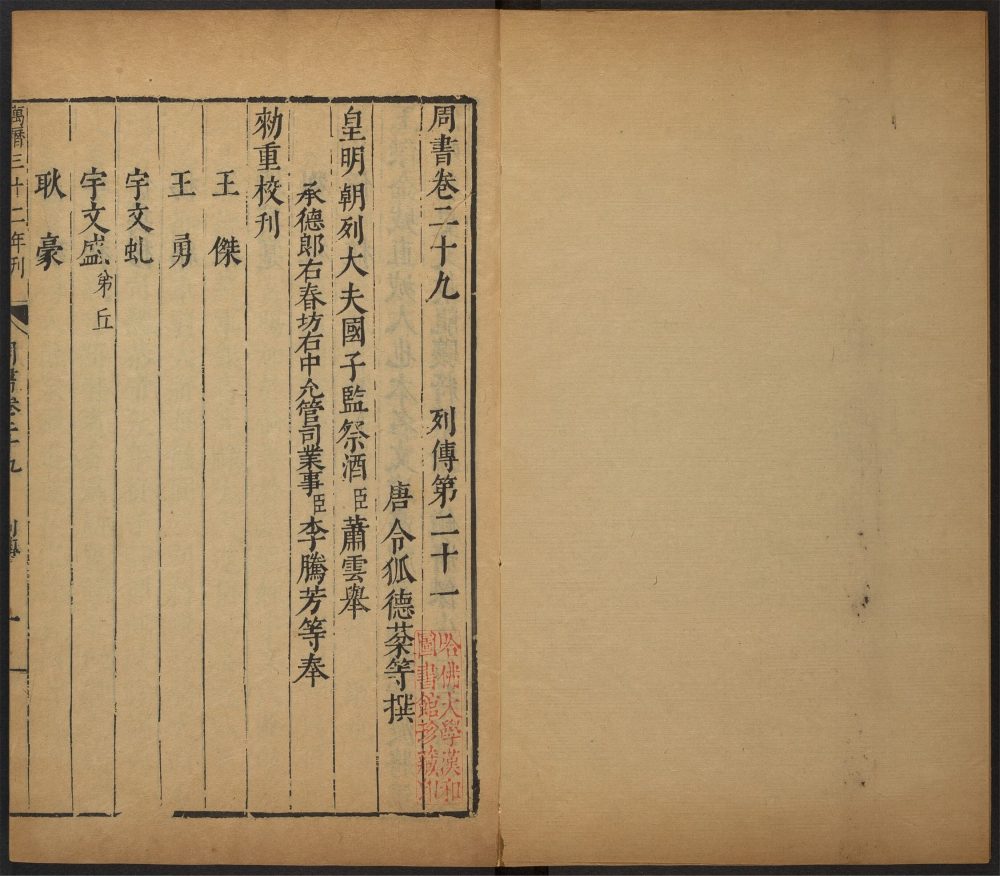 周書卷二十九 列傳第二十一
唐令狐德棻等撰
皇明朝列大夫國子監祭酒臣蕭雲舉
承德郎右春坊右中允管司業事臣李騰芳等奉
勑重校刊
王傑
王勇
宇文虬
宇文盛弟丘
耿豪
萬曆三十二年刊
周書卷二十九 列傳
哈佛大學漢和
圖書館珍藏印